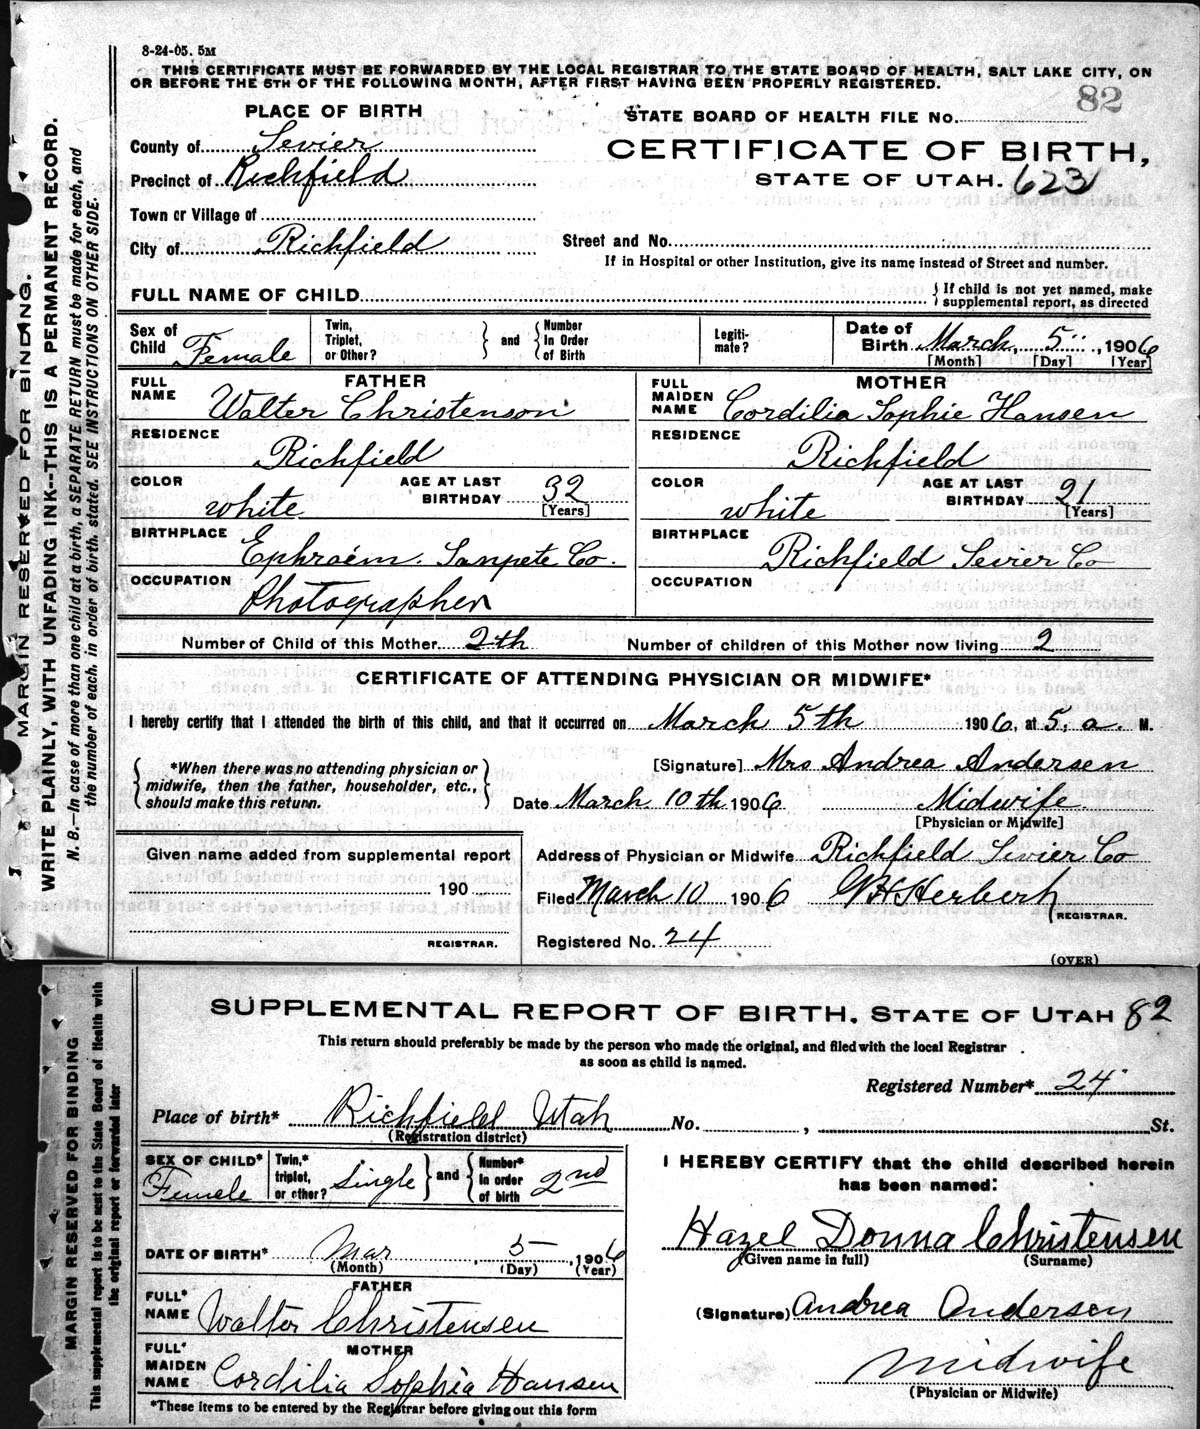 8-24-05. 5M
THIS CERTIFICATE MUST BE FORWARDED BY THE LOCAL REGISTRAR TO THE STATE BOARD OF HEALTH, SALT LAKE CITY, ON
OR BEFORE THE 5TH OF THE FOLLOWING MONTH, AFTER FIRST HAVING BEEN PROPERLY REGISTERED.
82
PLACE OF BIRTH
STATE BOARD OF HEALTH FILE No.
County of Sevier
CERTIFICATE OF BIRTH,
Precinct of Richfield
STATE OF UTAH. 623
Town or Village of
City of Richfield
Street and No.
If in Hospital or other Institution, give its name instead of Street and number.
FULL NAME OF CHILD
{ If child is not yet named, make
supplemental report, as directed
Sex of Child Female
Twin, Triplet, or Other?
} and {
Number In Order of Birth
Legiti-mate?
Date of Birth March 5 , 1906
[Month] [Day] [Year]
FATHER
FULL NAME Walter Christenson
RESIDENCE
Richfield
COLOR white
AGE AT LAST BIRTHDAY 32
[Years]
BIRTHPLACE Ephraem. Sanpete Co.
OCCUPATION
Photographer
MOTHER
FULL MAIDEN NAME Cordilia Sophie Hansen
RESIDENCE
Richfield
COLOR white
AGE AT LAST BIRTHDAY 21
[Years]
BIRTHPLACE Richfield Sevier Co
OCCUPATION
Number of Child of this Mother 2th
Number of children of this Mother now living 2
CERTIFICATE OF ATTENDING PHYSICIAN OR MIDWIFE*
I hereby certify that I attended the birth of this child, and that it occurred on March 5th 1906, at 5, a. M.
{ *When there was no attending physician or
midwife, then the father, householder, etc.,
should make this return. }
[Signature] Mrs Andrea Andersen
Date March 10th 1906 Midwife
[Physician or Midwife]
Given name added from supplemental report
190
REGISTRAR.
Address of Physician or Midwife Richfield Sevier Co
Filed March 10 1906
REGISTRAR.
Registered No. 24
(OVER)
MARGIN RESERVED FOR BINDING.
WRITE PLAINLY, WITH UNFADING INK--THIS IS A PERMANENT RECORD.
N. B.—In case of more than one child at a birth, a SEPARATE RETURN must be made for each, and
the number of each, in order of birth, stated. SEE INSTRUCTIONS ON OTHER SIDE.
SUPPLEMENTAL REPORT OF BIRTH, STATE OF UTAH 82
This return should preferably be made by the person who made the original, and filed with the local Registrar
as soon as child is named.
Registered Number* 24
Place of birth* Richfield Utah No. , St.
(Registration district)
SEX OF CHILD* Female
Twin,* triplet, or other? Single
} and {
Number* in order of birth 2nd
DATE OF BIRTH* Mar , 5 , 1906
(Month) (Day) (Year)
FATHER
FULL* NAME Walter Christensen
MOTHER
FULL* MAIDEN NAME Cordilia Sophia Hansen
*These items to be entered by the Registrar before giving out this form
I HEREBY CERTIFY that the child described herein
has been named:
Hazel Donna Christensen
(Given name in full) (Surname)
(Signature) Andrea Andersen
midwife
(Physician or Midwife)
MARGIN RESERVED FOR BINDING
This supplemental report is to be sent to the State Board of Health with
the original report or forwarded later